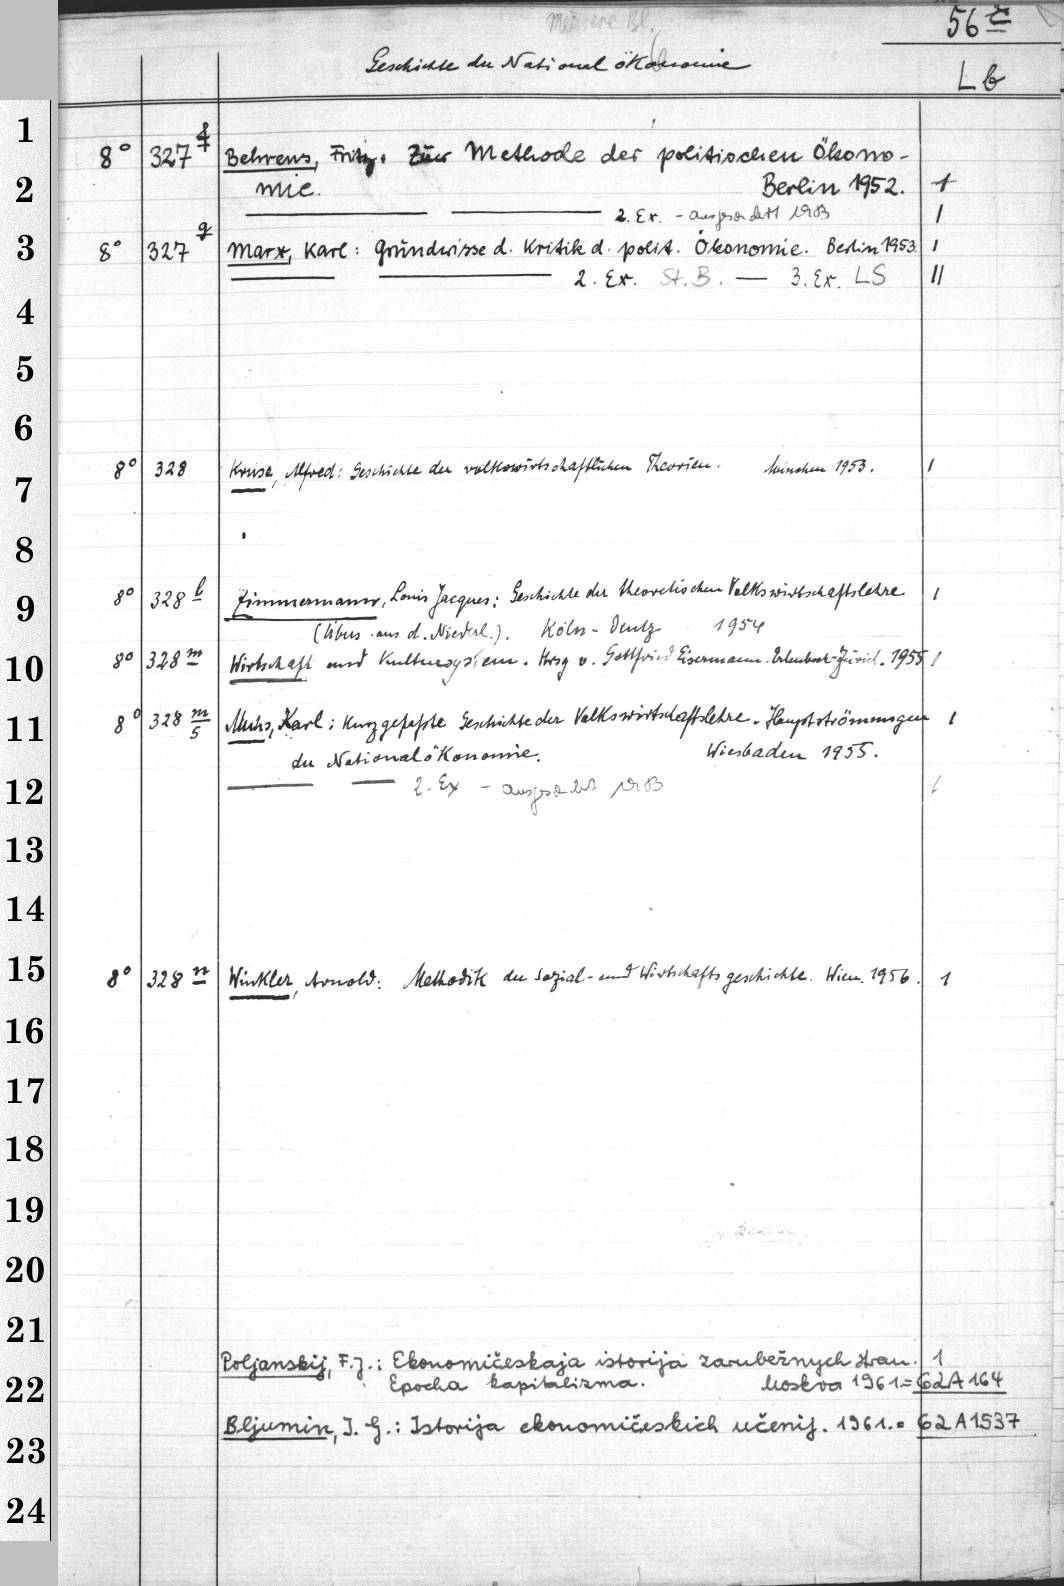 Mehrere Bl.
56
Geschichte der Nationalökonomie
Lb
1
8° 327 f Behrens, Fritz. Zur Methode der politischen Ökono-
2
mie. Berlin 1952. 1
2. Ex. - ausgesondert 1
3
8° 327 g Marx, Karl: Grundrisse d. Kritik d. polit. Ökonomie. Berlin 1953. 1
2. Ex. St. B. — 3. Ex. LS II
4
5
6
8° 328 Kruse, Alfred: Geschichte der volkswirtschaftlichen Theorien. München 1953. 1
7
8
8° 328 l Zimmermann, Louis Jacques: Geschichte der theoretischen Volkswirtschaftslehre 1
9
(Übers. aus d. Niederl.). Köln-Deutz 1954
10
8° 328 m Wirtschaft und Kultursystem. Hrsg v. Gottfried Eisermann. Erlenbach-Zürich. 1955 1
11
8° 328 m/5 Muhs, Karl: Kurzgefaßte Geschichte der Volkswirtschaftslehre. Hauptströmungen 1
der Nationalökonomie. Wiesbaden 1955.
12
2. Ex - ausgesondert
13
14
15
8° 328 n Winkler, Arnold: Methodik der Sozial- und Wirtschaftsgeschichte. Wien. 1956. 1
16
17
18
19
20
21
Poljanskij, F. J.: Ekonomičeskaja istorija zarubežnych stran. 1
22
Epocha kapitalizma. Moskva 1961.= 62A164
23
Bljumin, I. G.: Istorija ekonomičeskich učenij. 1961.= 62A1537
24